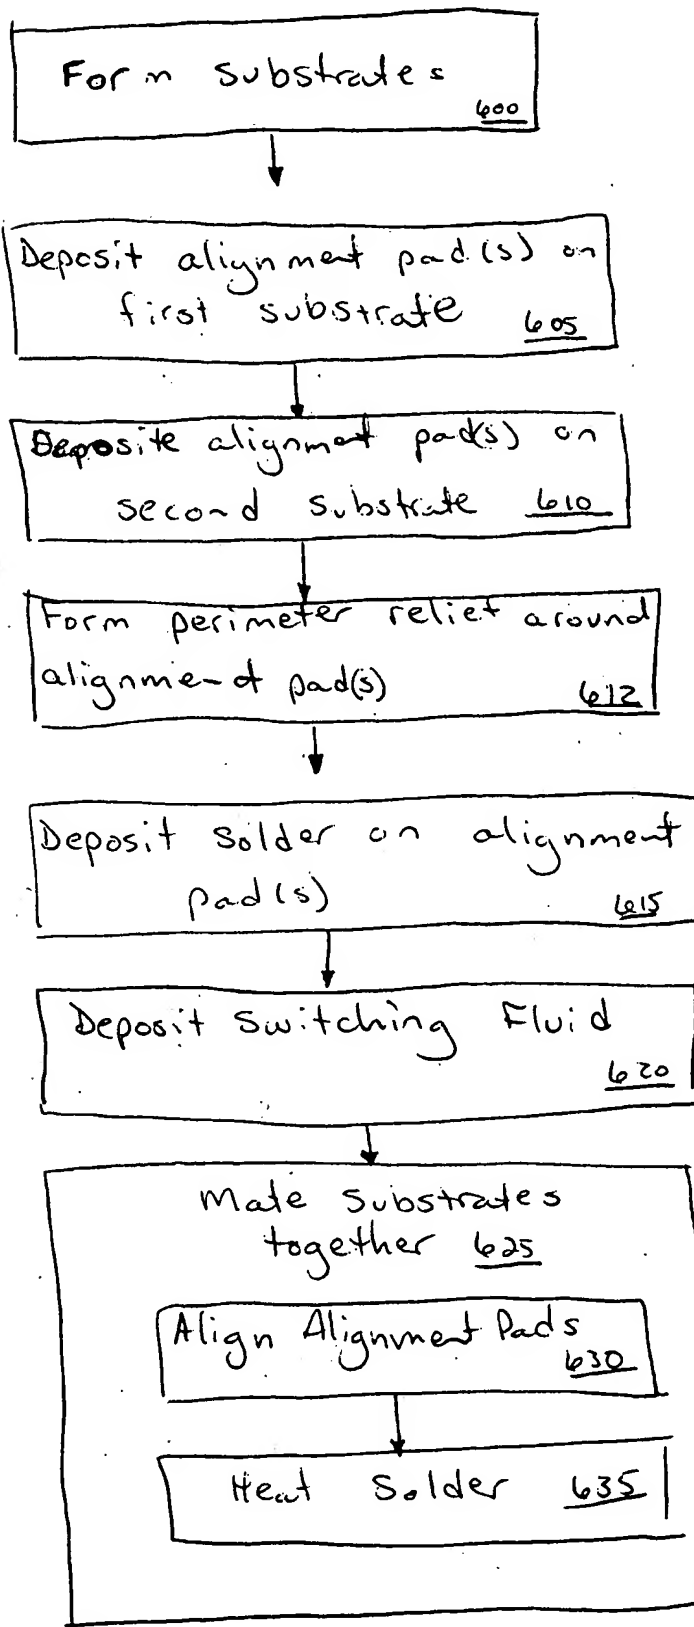 Form Substrates
600
Deposit alignment pad(s) on
first substrate 605
Deposite alignment pad(s) on
second substrate 610
Form perimeter relief around
alignment pad(s) 612
Deposit Solder on alignment
pad(s) 615
Deposit Switching Fluid
620
Mate Substrates
together 625
Align Alignment Pads
630
Heat Solder 635